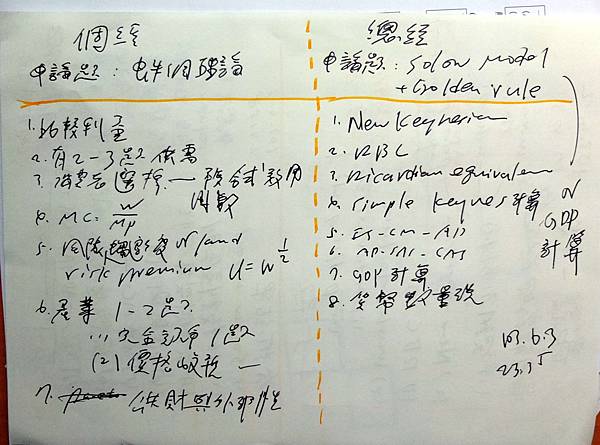 個經
申論題：
1. 比較利益
2. 有2-3題供需
3. 消費者選擇 — 預算 效用
函數
4. MC = W/MP
5. 風險 and
risk premium U = W^1/2
6. 產業 1-2題
(1) 完全競爭 1題
(2) 價格歧視 —
7. 公共財與外部性
總經
申論題：Solow Model
+ Golden rule
1. New Keynesian
2. RBC
3. Ricardian equivalen
4. simple Keynes 計算
5. IS-LM-AD
6.
7. GDP 計算
8. 貨幣數量說
N
GDP
計算
103.6.3
23:35